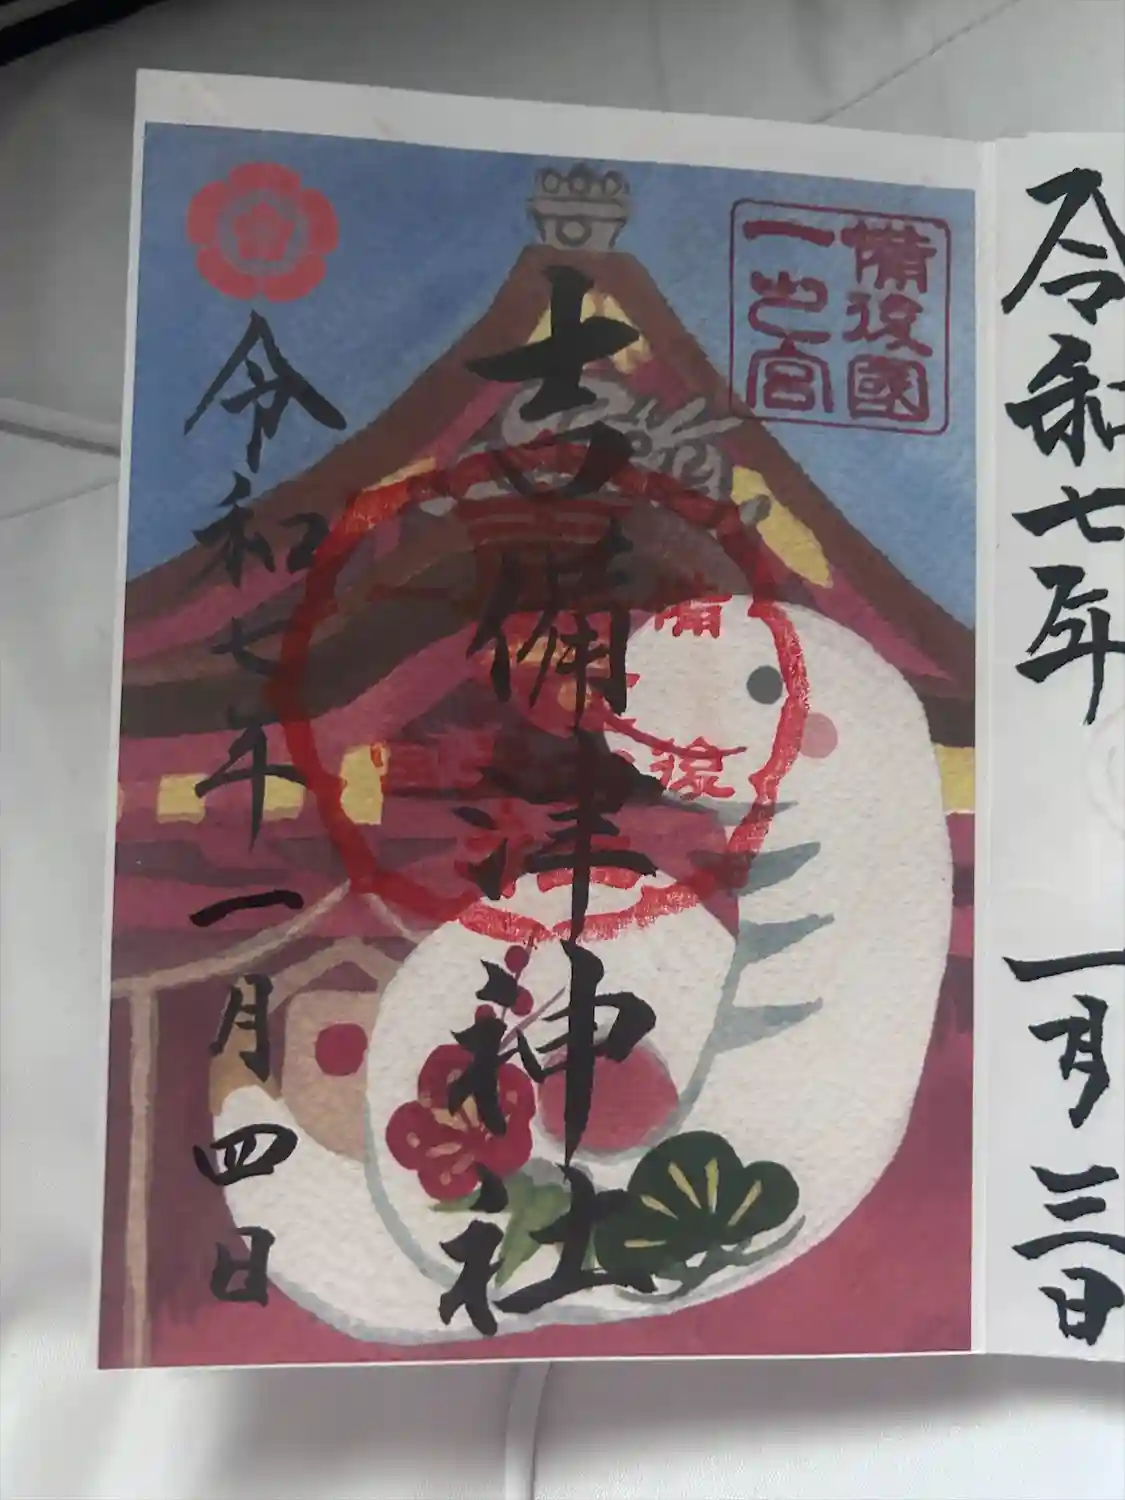 令和七年 一月三日
備後國
一之宮
吉備津神社
備後
令和七年一月四日